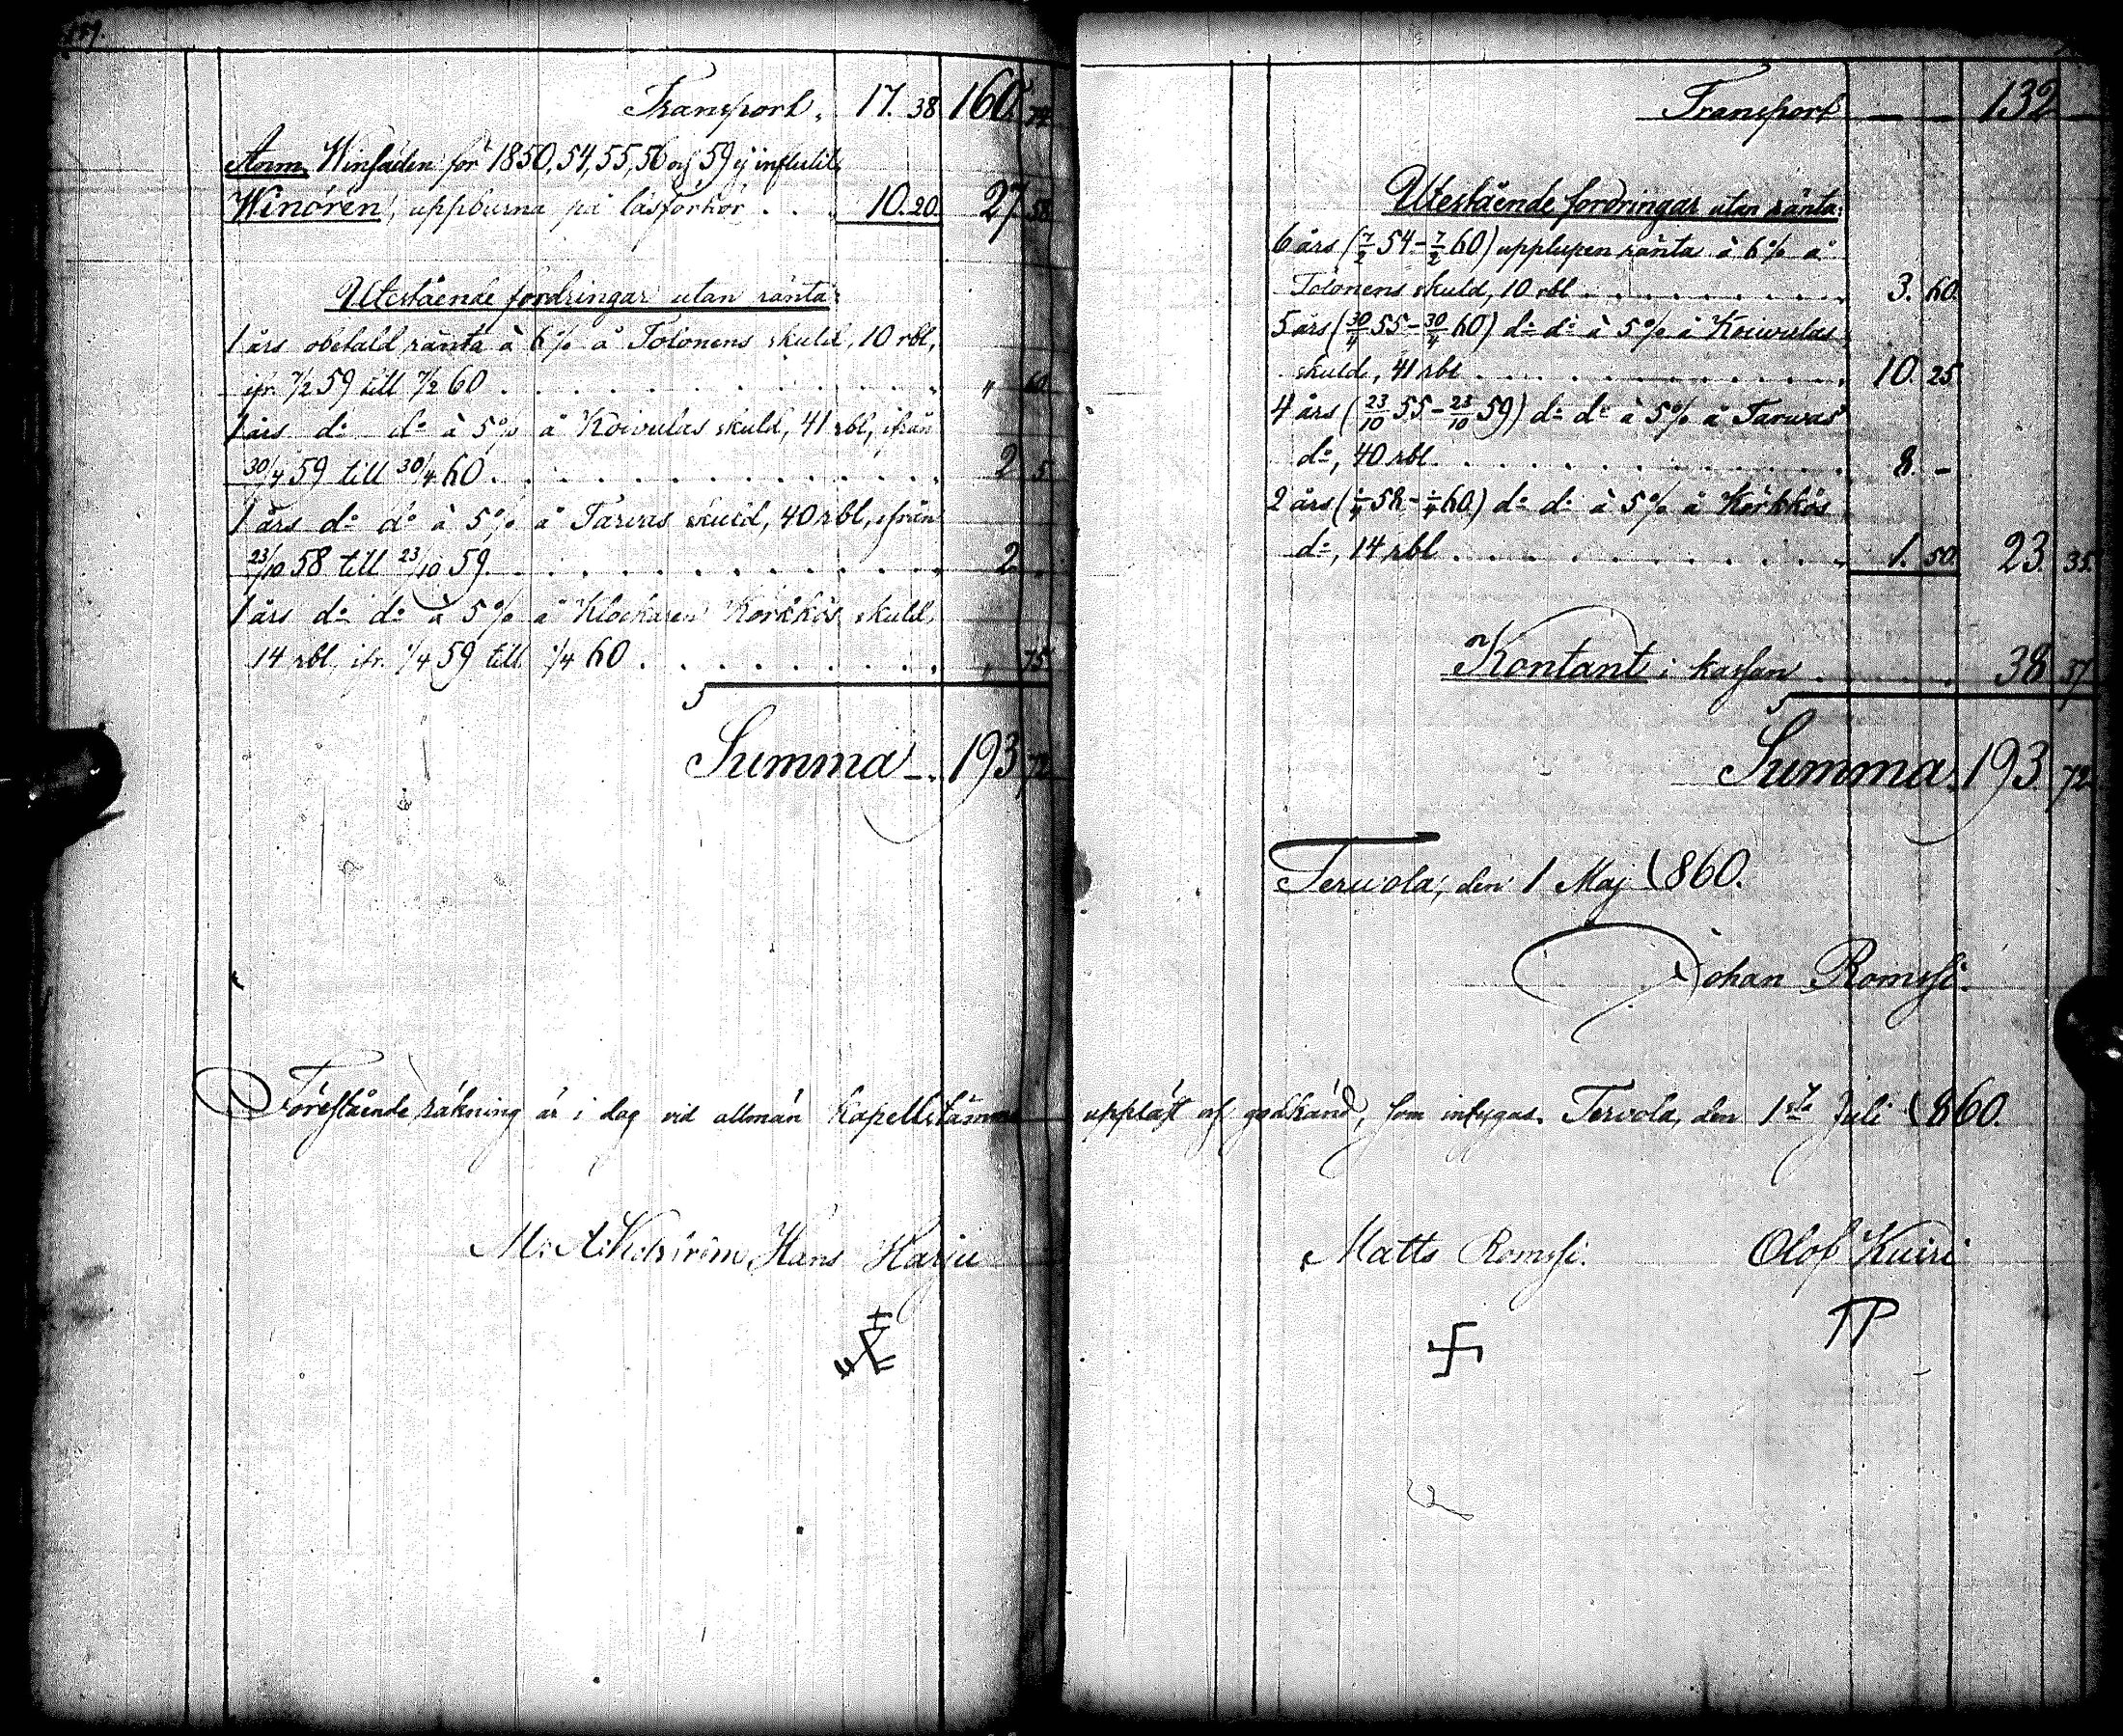 Transport. 17. 38 160. 74
Anm. Winsäden för 1850, 54, 55, 56 och 59 ej influtit.
Winören, uppburna på läsförhör . . . 10. 20. 27 58
Utestående fordringar utan ränta:
1 års obetald ränta à 6% å Tolonens skuld, 10 rbl,
ifr. 7/2 59 till 7/2 60 . . . . . . . . . „ 60
1 års do do à 5% å Koivulas skuld, 41 rbl, ifrån
30/4 59 till 30/4 60 . . . . . . . . . 2 5
1 års do do à 5% å Tarvas skuld, 40 rbl, ifrån
23/10 58 till 23/10 59 . . . . . . . . . 2 .
1 års do do à 5% å Klockaren Körkkös skuld,
14 rbl, ifr. 1/4 59 till 1/4 60 . . . . . . . . . „ 75
Summa 193 72
Transport — — 132 —
Utestående fordringar utan ränta:
6 års (7/2 54 - 7/2 60) upplupen ränta à 6% å
Tolonens skuld, 10 rbl . . . . . . . . . 3. 60.
5 års (30/4 55 - 30/4 60) do do à 5% å Koivulas
skuld, 41 rbl . . . . . . . . . 10. 25
4 års (23/10 55 - 23/10 59) do do à 5% å Tarvas
do, 40 rbl . . . . . . . . . 8. -
2 års (1/4 58 - 1/4 60) do do à 5% å Körkkös
do, 14 rbl . . . . . . . . . 1. 50. 23. 35.
Kontant i kassan . . . . . 38 37
Summa. 193. 72
Tervola, den 1 Maj 1860.
Johan Romssi.
Förestående räkning är i dag vid allmän kapellstämma uppläst och godkänd, som intygas. Tervola, den 1sta Juli 1860.
Hans Harju Matts Romssi. Olof Kuiri